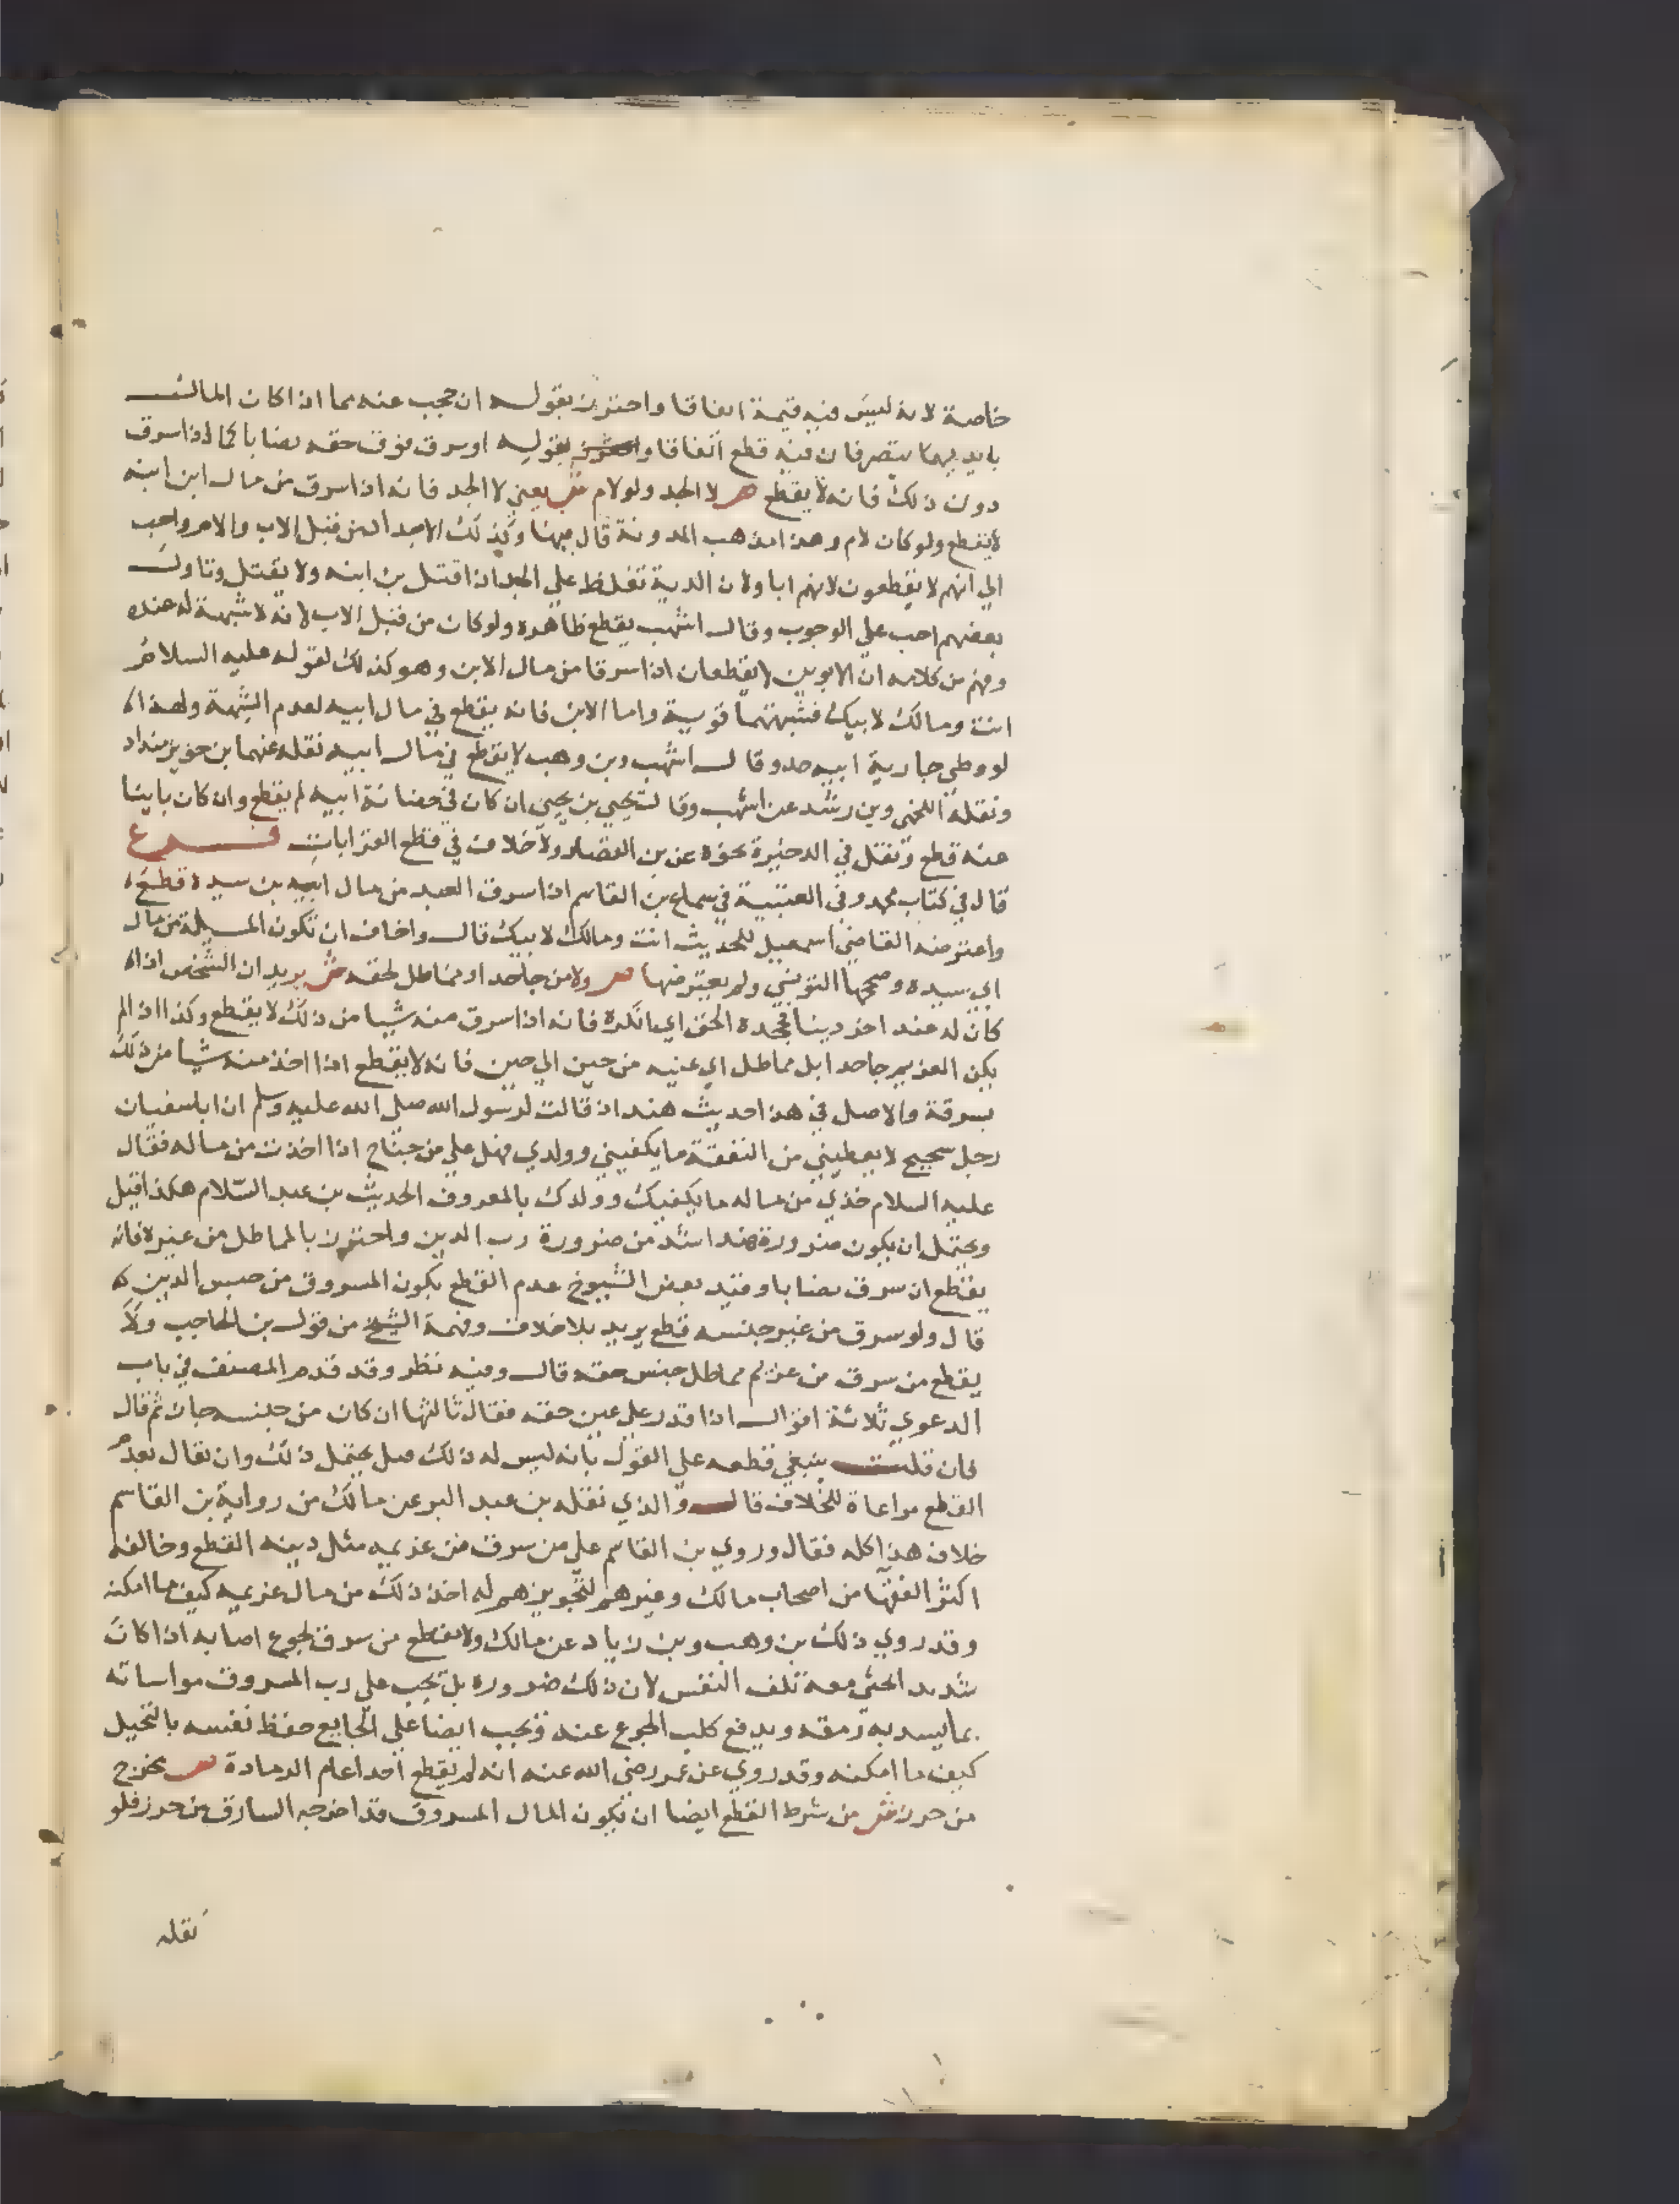 خاصة لانه ليس فيه قيمة اتفاقا واحترز بقوله ان حجب عنه مما اذا كان المال
بايديهما يتصرفان فيه قطع اتفاقا واحترز بقوله او سرق فوق حقه نصابا كما اذا سرق
دون ذلك فانه لا يقطع ص لا الجد ولو لام ش يعني لا الجد فانه اذا سرق من مال ابن ابنه
لا يقطع ولو كان لام وهذا مذهب المدونة قال فيها وكذلك الاجداد من قبل الاب والام واحب
الي انهم لا يقطعون لانهم ابا ولان الدية تغلظ علي الجد اذا قتل بن ابنه ولا يقتل وتاول
بعضهم احب علي الوجوب وقال اشهب يقطع ظاهره ولو كان من قبل الاب لانه لا شبهة له عنده
وفهم من كلامه ان الابوين لا يقطعان اذا سرقا من مال الابن وهو كذلك لقوله عليه السلام
انت ومالك لابيك فشبهتهما قوية واما الابن فانه يقطع في مال ابيه لعدم الشبهة ولهذا
لو وطي جارية ابيه حد وقال اشهب وبن وهب لا يقطع في مال ابيه نقله عنهما ابن خويزمنداد
ونقله اللخمي وبن رشد عن اشهب وقال يحيي بن يحيي ان كان في حضانة ابيه لم يقطع وان كان باينا
عنه قطع ونقل في الدخيرة نحوه عن بن القصار ولا خلاف في قطع القرابات فرع
قال في كتاب محمد وفي العتبية في سماع بن القاسم اذا سرق العبد من مال ابيه بن سيده قطع
واعترضه القاضي اسمعيل للحديث انت ومالك لابيك قال واخاف ان تكون المسيلة من مال
ابي سيده وصححها التونسي ولم يعترضها ص ولا من جاحد او مماطل لحقه ش يريد ان الشخص اذا
كان له عند اخر دينا فجحده الحق اي انكره فانه اذا سرق منه شيا من ذلك لا يقطع وكذا اذا لم
يكن الغريم جاحدا بل مماطل اي عنيه من حين الي حين فانه لا يقطع اذا اخذ منه شيا من ذلك
بسرقة والاصل في هذا حديث هند اذ قالت لرسول الله صلي الله عليه وسلم ان ابا سفيان
رجل شحيح لا يعطيني من النفقة ما يكفيني وولدي فهل علي من جناح اذا اخذت من ماله فقال
عليه السلام خذي من ماله ما يكفيك وولدك بالمعروف الحديث بن عبد السلام هكذا قيل
ويحتمل ان يكون ضرورة هند اشد من ضرورة رب الدين واحترز بالمماطل من غيره فانه
يقطع ان سرق نصابا وقيد بعض الشيوخ عدم القطع بكون المسروق من جنس الدين
قال ولو سرق من غير جنسه قطع يريد بلا خلاف وفهمة الشيخ من قول بن الحاجب ولا
يقطع من سرق من غريم مماطل جنس حقه قال وفيه نظر وقد قدم المصنف في باب
الدعوي ثلاثة اقوال اذا قدر علي عين حقه فقال ثالثها ان كان من جنسه جاز ثم قال
فان قلت ينبغي قطعه علي القول بانه ليس له ذلك قيل يحتمل ذلك وان يقال بعدم
القطع مراعاة للخلاف قال والذي نقله بن عبد البر عن مالك من رواية بن القاسم
خلاف هذا كله فقال وروي بن القاسم علي من سرق من غريمه مثل دينه القطع وخالفه
اكثر الفقها من اصحاب مالك وغيرهم لتجويزهم له اخذ ذلك من مال غريمه كيف ما امكنه
وقد روي ذلك بن وهب وبن زياد عن مالك ولا يقطع من سرق لجوع اصابه اذا كان
شديد الخشي معه تلف النفس لان ذلك ضروره بل تجب علي رب المسروق مواساته
بما يسد به رمقه ويدفع كلب الجوع عنه ويجب ايضا علي الجايع حفظ نفسه بالتحيل
كيف ما امكنه وقد روي عن عمر رضي الله عنه انه لم يقطع احدا عام الرمادة ص مخرج
من حرز ش من شرط القطع ايضا ان يكون المال المسروق قد اخرجه السارق من حرز فلو
نقله